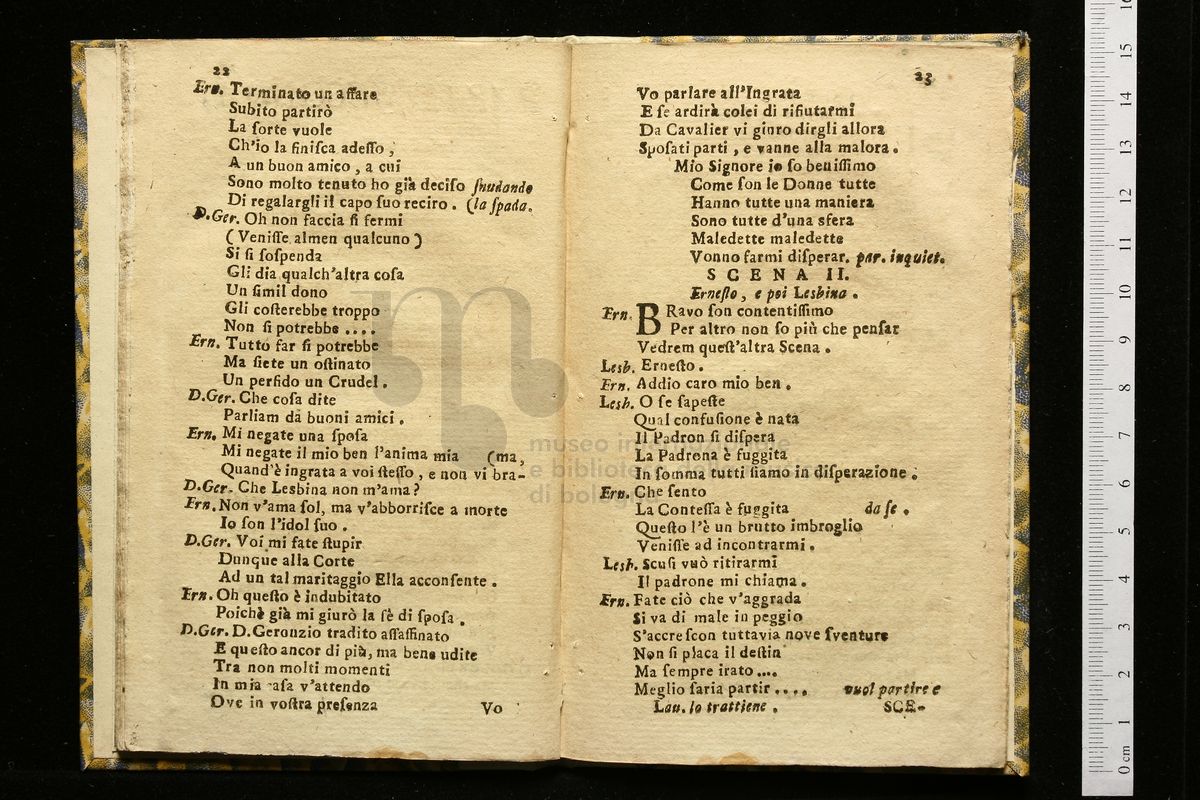 22
Ern. Terminato un affare
Subito partirò
La ſorte vuole
Ch'io la finiſca adeſſo,
A un buon amico, a cui
Sono molto tenuto ho già deciſo ſnudando
Di regalargli il capo ſuo reciro. (la ſpada.
D.Ger. Oh non faccia ſi fermi
(Veniſſe almen qualcuno)
Si ſi ſoſpenda
Gli dia qualch'altra coſa
Un ſimil dono
Gli coſterebbe troppo
Non ſi potrebbe ....
Ern. Tutto far ſi potrebbe
Ma ſiete un oſtinato
Un perfido un Crudel.
D.Ger. Che coſa dite
Parliam da buoni amici.
Ern. Mi negate una ſpoſa
Mi negate il mio ben l'anima mia (ma,
Quand'è ingrata a voi ſteſſo, e non vi bra-
D.Ger. Che Lesbina non m'ama?
Ern. Non v'ama ſol, ma v'abborriſce a morte
Io ſon l'idol ſuo.
D.Ger. Voi mi fate ſtupir
Dunque alla Corte
Ad un tal maritaggio Ella acconſente.
Ern. Oh queſto è indubitato
Poichè già mi giurò la fè di ſpoſa.
D.Ger. D.Geronzio tradito aſſaſſinato
E queſto ancor di più, ma bene udite
Tra non molti momenti
In mia caſa v'attendo
Ove in voſtra preſenza
Vo
23
Vo parlare all'Ingrata
E ſe ardirà colei di rifiutarmi
Da Cavalier vi giuro dirgli allora
Spoſati parti, e vanne alla malora.
Mio Signore io ſo beniſſimo
Come ſon le Donne tutte
Hanno tutte una maniera
Sono tutte d'una sfera
Maledette maledette
Vonno farmi diſperar. par. inquiet.
SCENA II.
Erneſto, e poi Lesbina.
Ern. BRavo ſon contentiſſimo
Per altro non ſo più che penſar
Vedrem queſt'altra Scena.
Lesb. Erneſto.
Ern. Addio caro mio ben.
Lesb. O ſe ſapeſte
Qual confuſione è nata
Il Padron ſi diſpera
La Padrona è fuggita
In ſomma tutti ſiamo in diſperazione.
Ern. Che ſento
La Conteſſa è fuggita da ſe.
Queſto l'è un brutto imbroglio
Veniſſe ad incontrarmi.
Lesb. Scuſi vuò ritirarmi
Il padrone mi chiama.
Ern. Fate ciò che v'aggrada
Si va di male in peggio
S'accreſcon tuttavia nove ſventure
Non ſi placa il deſtin
Ma ſempre irato ....
Meglio ſaria partir .... vuol partire e
Lau. lo trattiene.
SCE-
museo
e biblioteca
di bologna
0 cm 1 2 3 4 5 6 7 8 9 10 11 12 13 14 15 16